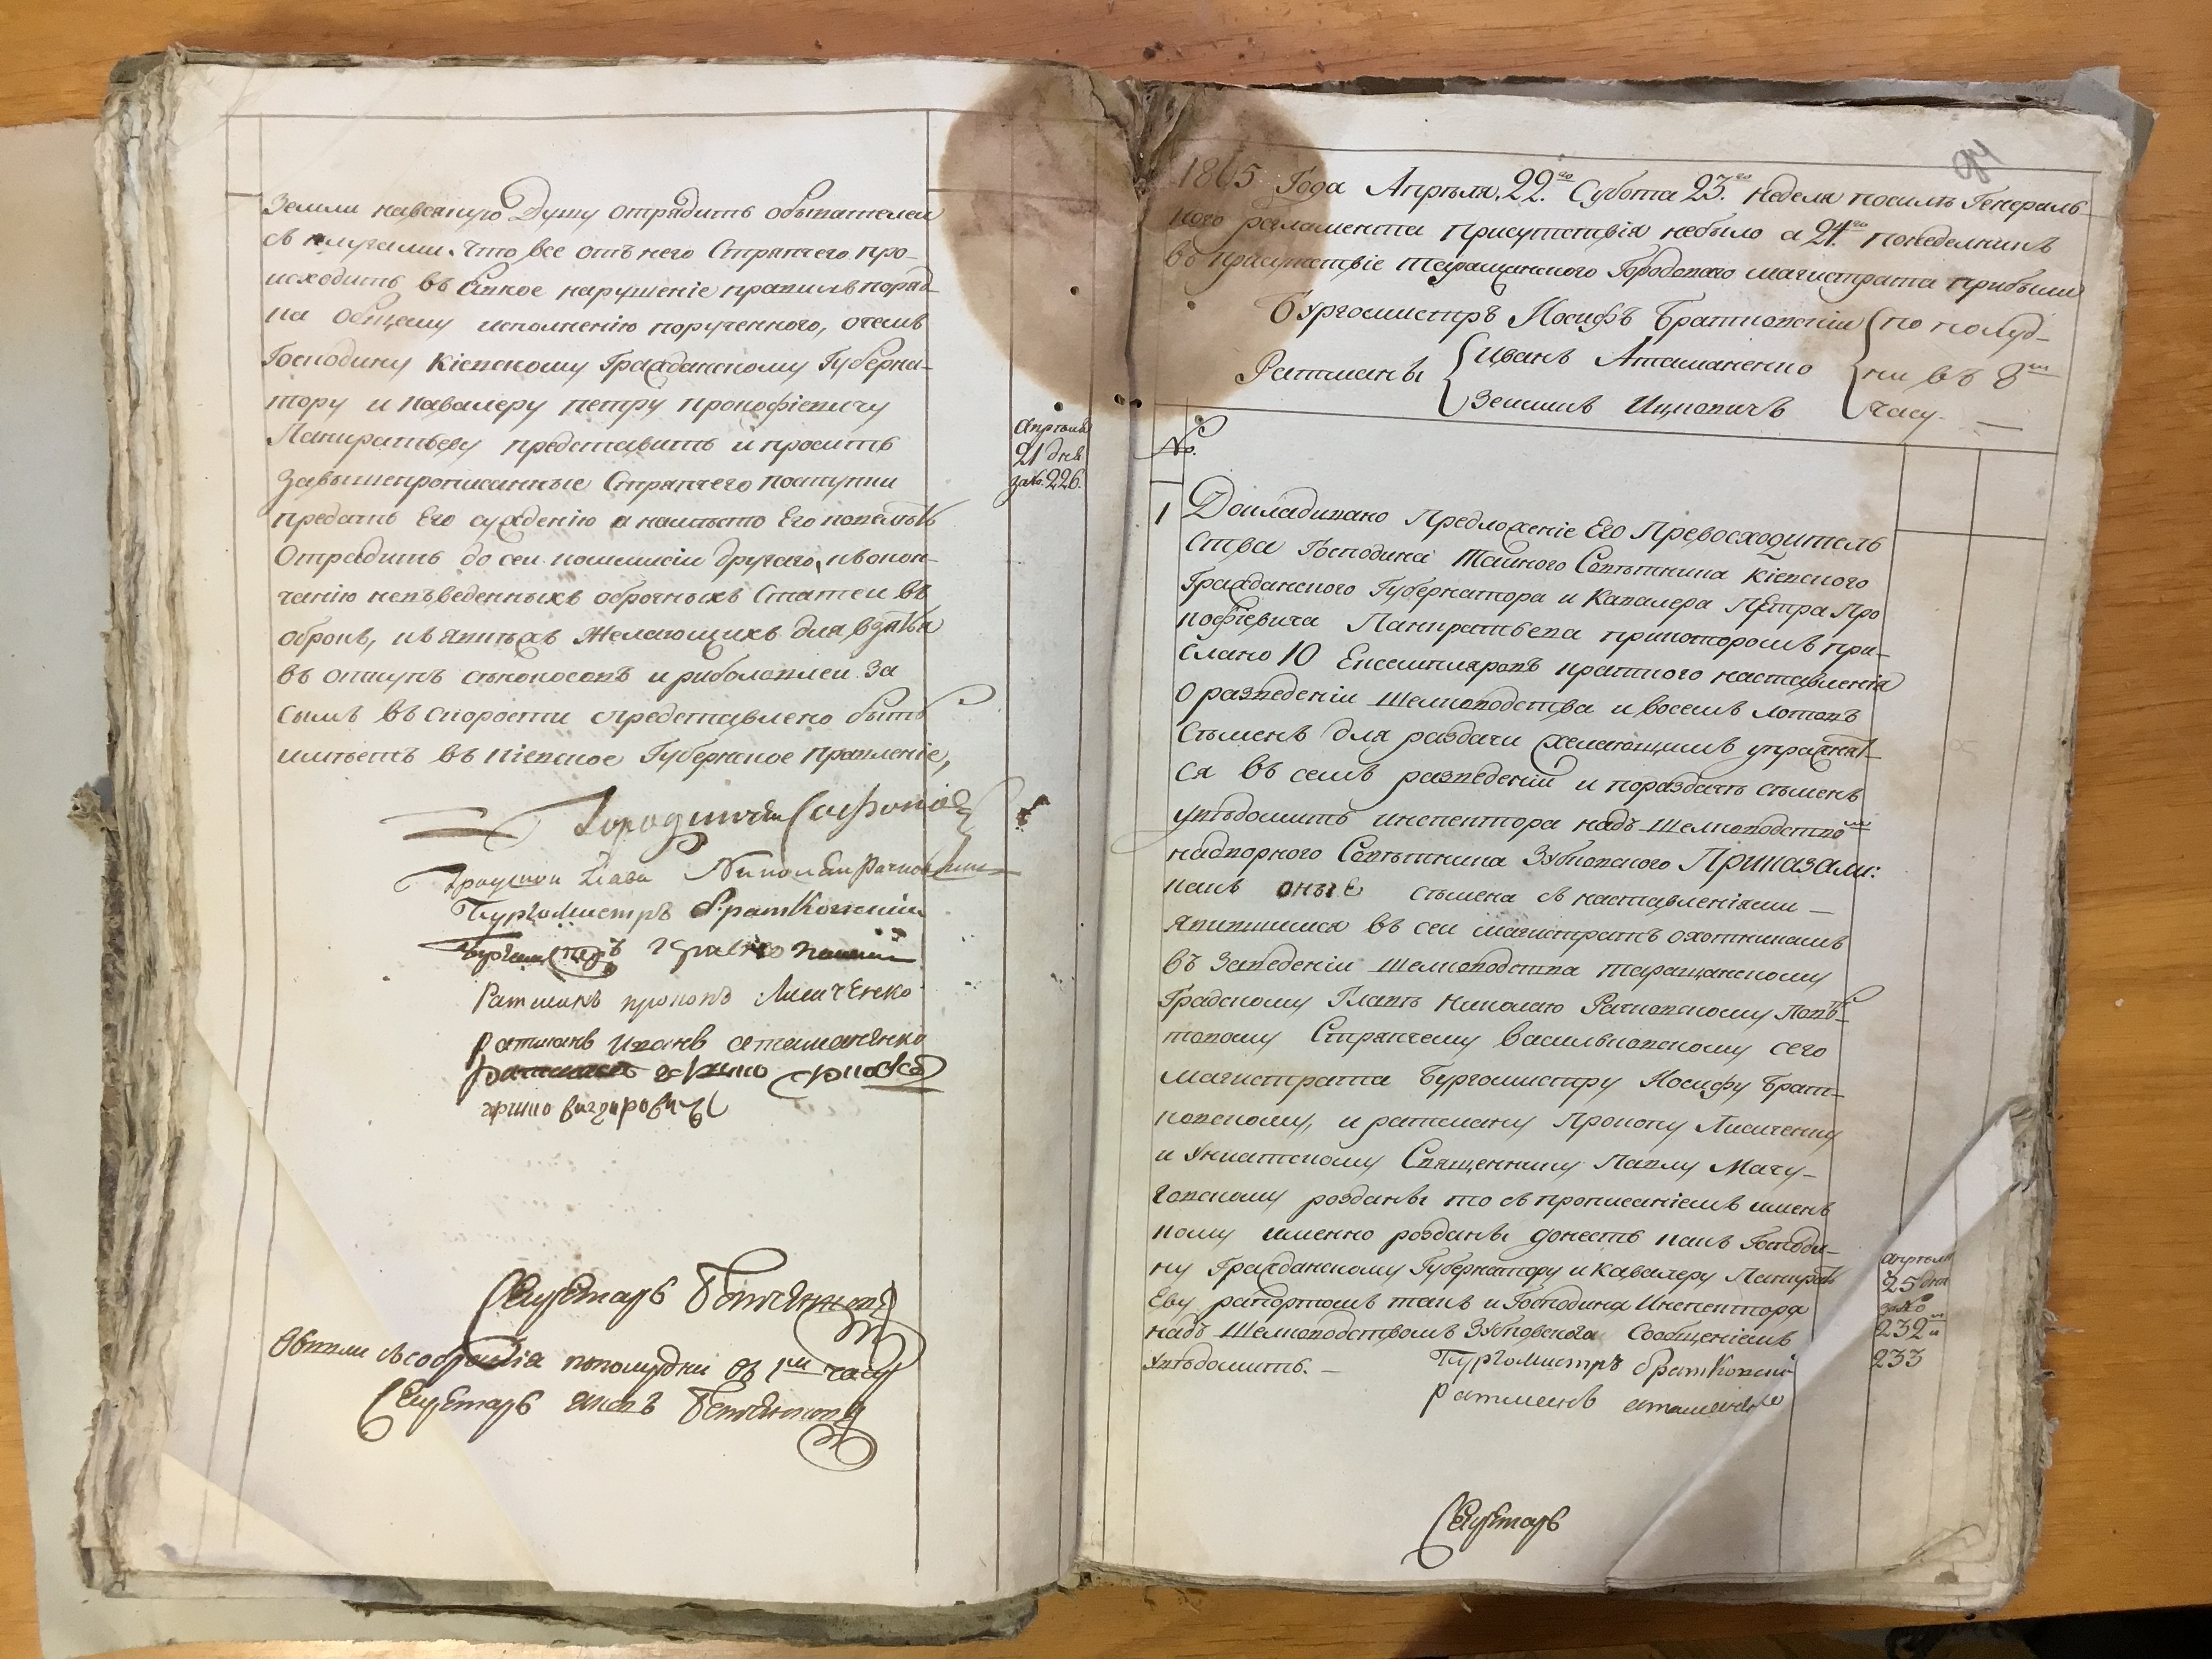 земли навсякую Душу отрядить обывателей
съ плугами. Что все отъ него Стряпчего про-
исходить въ явное нарушеніе правилъ поряд-
ка общему исполненію порученного, очемъ
Господину Кіевскому Гражданскому Губерна-
тору и Кавалеру Петру Прокофіевичу
Панкратьеву представить и просить
завышепрописанные Стряпчего поступки
предать Его сужденію а намѣсто Его повелѣть
Отрядить до сей комиссіи другаго,
чанію невъведенныхъ оброчныхъ Статей въ
оброкъ, Желающихъ для взятья
въ откупъ сѣнокосовъ и риболовлей за
Симъ въ Скорости представлено быть
имѣетъ въ Кіевское Губернское Правленіе,
Апрѣля
21 дня
за №. 226.
Городничій Сафоновъ
Градской Глава Николай Рачковскій
Бургомистръ Братковскій
Бургомистръ
Ратманъ Прокопъ Лисиченко
Ратманъ Иванъ Атаманенко
Секретарь
Въишли съ собранія пополудни въ 1мъ часу
Секретарь
84
1805 Года Апрѣля. 22го Субота 23го Неделя посилѣ Генераль-
ного регламента присутствія небыло а 24го понеделникъ
въ присутствіе Таращанского Городового магистрата прибыли
Бургомистръ Иосифъ Братковскій по полуд-
Ратманы Иванъ Атаманенко ни въ 8мъ
Зейликъ Ицковичъ часу. —
№.
1 Докладивано Предложеніе Его Превосходитель
Ства Господина Тайного Совѣтника Кіевского
Гражданского Губернатора и Кавалера Петра Про
кофіевича Панкратьева прикоторомъ при-
слано 10 Екземпляровъ кратного наставленія
О разведеніи Шелководства и восемъ лотовъ
Сѣменъ для раздачи желающимъ упражнят-
ся въ семъ разведеніи и пораздачѣ сѣменъ
увѣдомить инспектора надъ Шелководствомъ
надворного Совѣтника Зубковского Приказали:
какъ оные сѣмена съ наставленіями —
явившимся въ сей магистратъ охотникамъ
въ Заведеніи Шелководства Таращанскому
Градскому Главѣ Николаю Рачковскому Повѣ-
товому Стряпчему Васильковскому сего
магистрата Бургомистру Иосифу Брат-
ковскому, и ратману Прокопу Лисиченку
и Униатскому Священнику Павлу Мачу-
говскому розданы то съ прописаніемъ именъ
кому именно розданы донесть какъ Господи-
ну Гражданскому Губернатору и Кавалеру Панкратъ
Еву рапортомъ такъ и Господина Инспектора
надъ Шелководствомъ Зубковского Сообщеніемъ
увѣдомить. —
Апрѣля
25 дня
за №
232мъ и
233
Бургомистръ Братковскій
Ратманъ Атаманенко
Секретарь